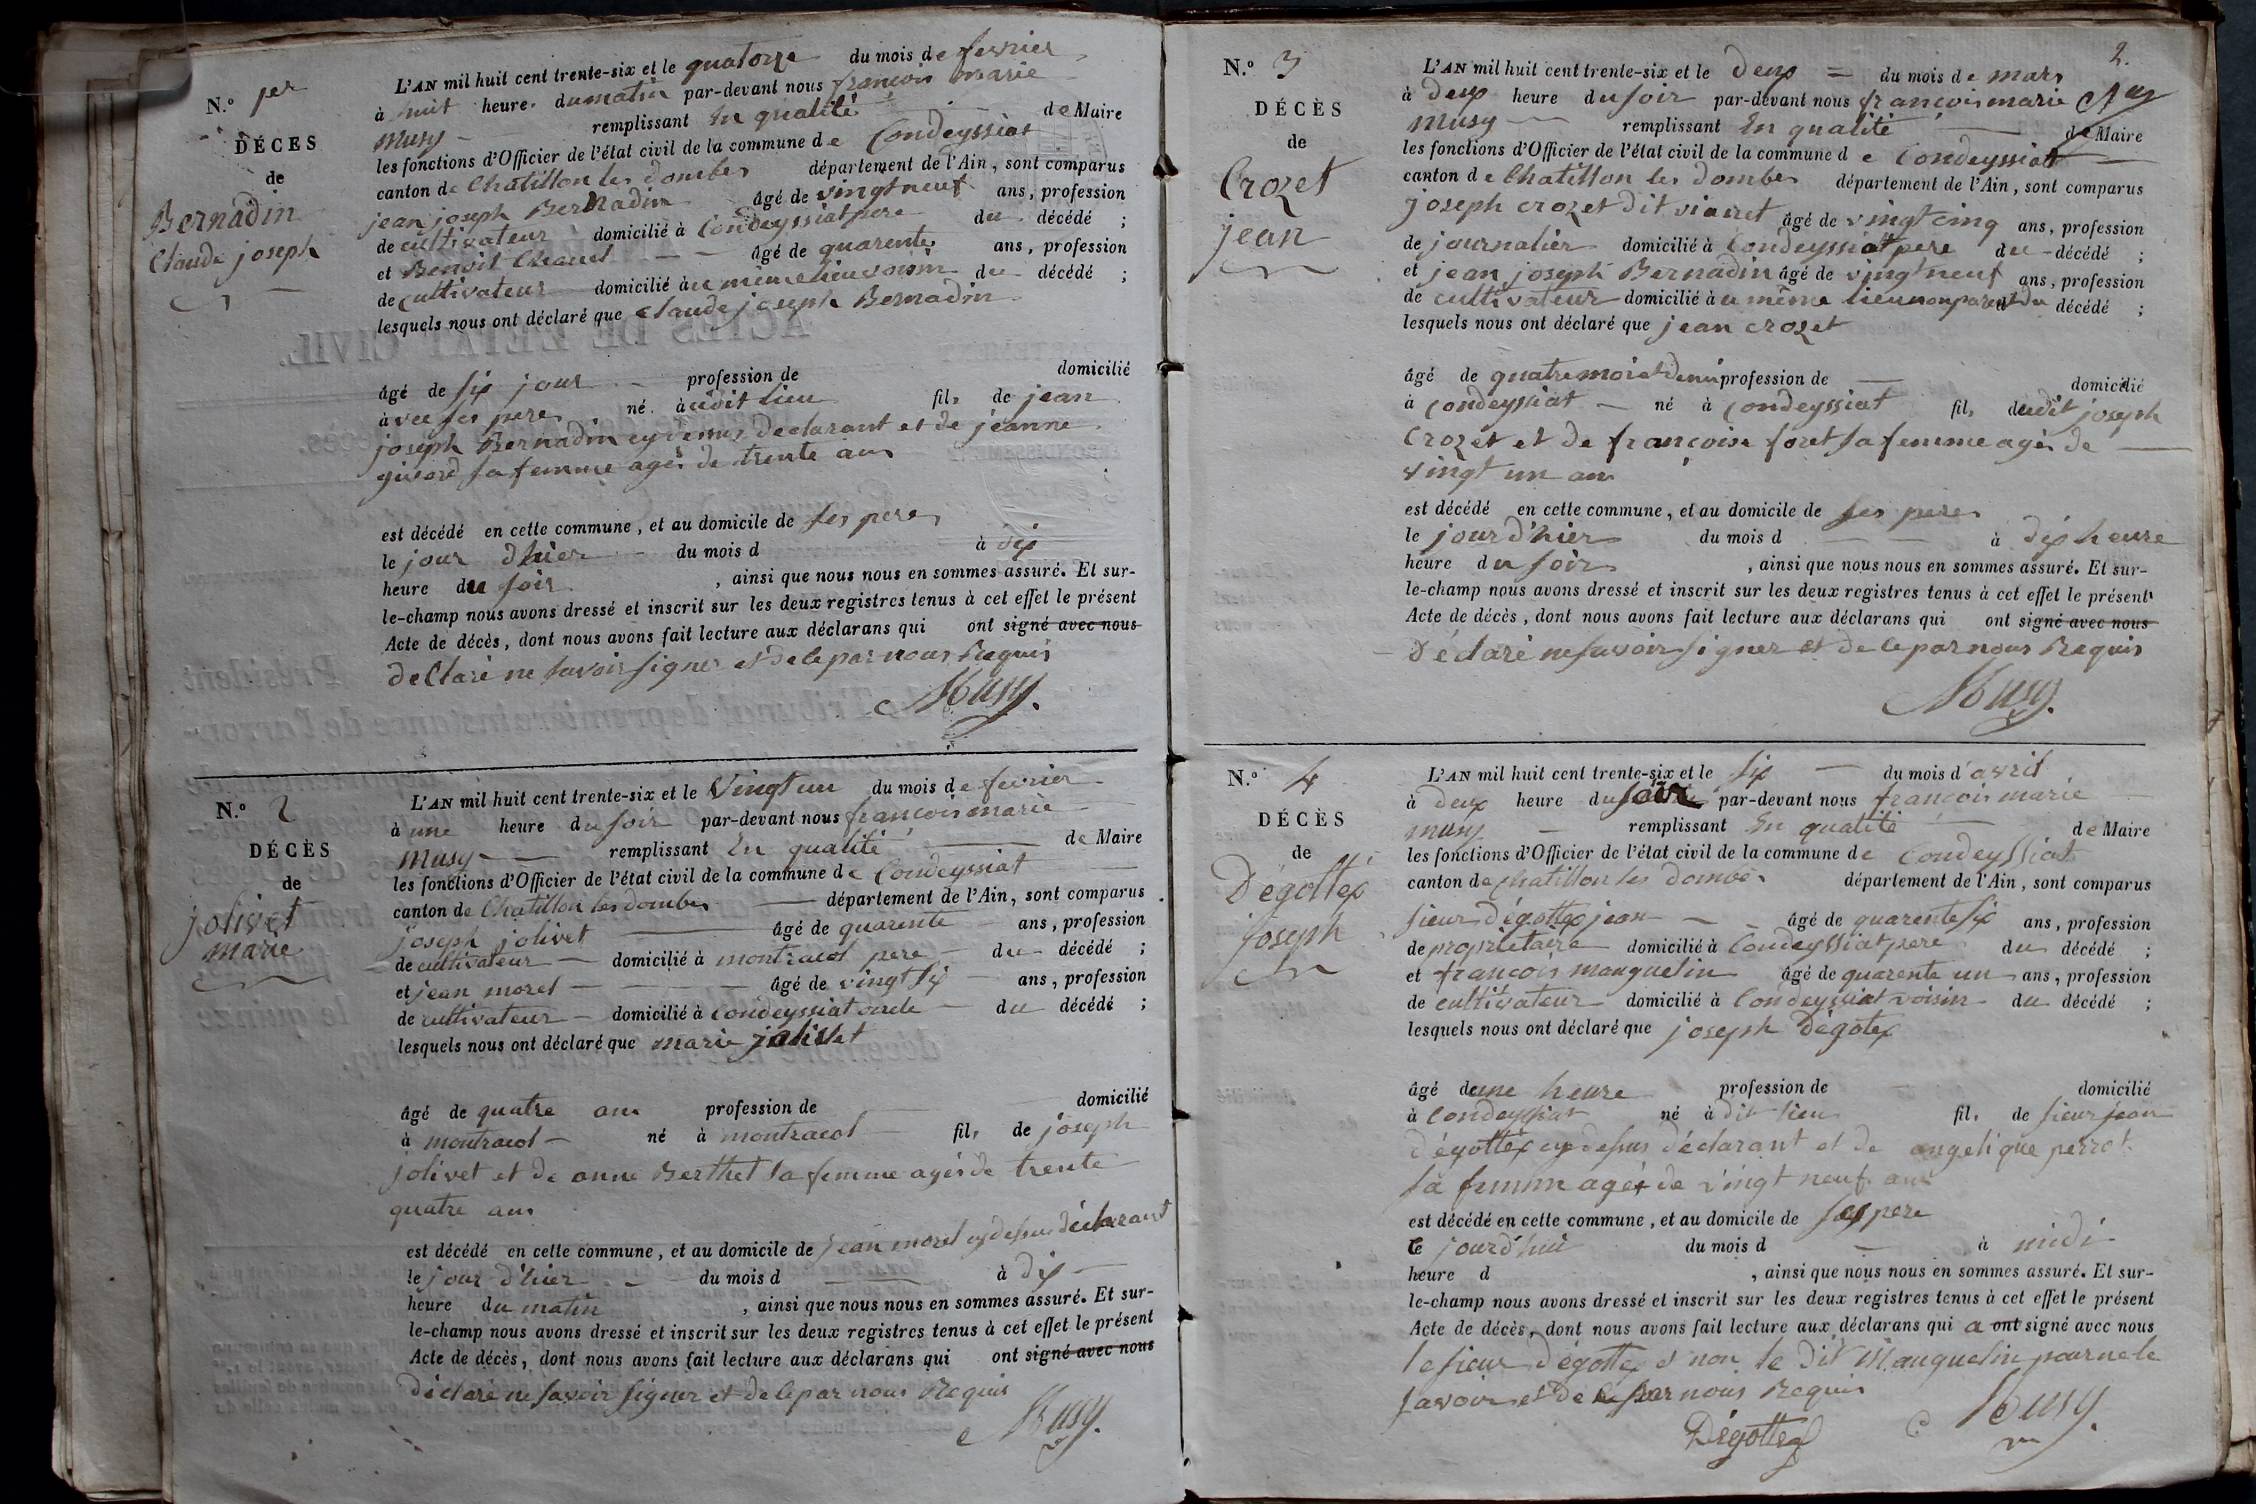 N.o 1er
DÉCES
de
Bernadin
Claude joseph
L'AN mil huit cent trente-six et le quatorze du mois de fevrier
à huit heure. du matin par-devant nous françois marie
Musy remplissant En qualité de Maire
les fonctions d'Officier de l'état civil de la commune de Condeyssiat
canton de Chatillon les dombes département de l'Ain, sont comparus
jean joseph Bernadin âgé de vingt neuf ans, profession
de cultivateur domicilié à Condeyssiat pere du décédé ;
et Benoit âgé de quarente ans, profession
de cultivateur domicilié à u même lieu voisin du décédé ;
lesquels nous ont déclaré que Claude joseph Bernadin
âgé de six jour profession de domicilié
à vec ses peres né à udit lieu fils de jean
joseph Bernadin cy dessus declarant et de jeanne
givord sa femme agés de trente ans
est décédé en cette commune, et au domicile de ses peres
le jour d'hier du mois d à six
heure du soir , ainsi que nous nous en sommes assuré. Et sur-
le-champ nous avons dressé et inscrit sur les deux registres tenus à cet effet le présent
Acte de décès, dont nous avons fait lecture aux déclarans qui ont signé avec nous
declaré ne savoir signer et de ce par nous Requis
Musy.
N.o 2
DÉCÈS
de
jolivet
marie
L'AN mil huit cent trente-six et le Vingt un du mois de fevrier
à une heure du soir par-devant nous françois marie
Musy remplissant En qualité de Maire
les fonctions d'Officier de l'état civil de la commune de Condeyssiat
canton de Chatillon les dombes département de l'Ain, sont comparus
joseph jolivet âgé de quarente ans, profession
de cultivateur domicilié à montracol pere du décédé ;
et jean morel âgé de vingt six ans, profession
de cultivateur domicilié à Condeyssiat oncle du décédé ;
lesquels nous ont déclaré que marie jolivet
âgé de quatre ans profession de domicilié
à montracol né à montracol fils de joseph
jolivet et de anne Berthet sa femme agés de trente
quatre ans
est décédé en cette commune, et au domicile de jean morel cy dessus déclarant
le jour d'hier du mois d à dix
heure du matin , ainsi que nous nous en sommes assuré. Et sur-
le-champ nous avons dressé et inscrit sur les deux registres tenus à cet effet le présent
Acte de décès, dont nous avons fait lecture aux déclarans qui ont signé avec nous
déclaré ne savoir signer et de ce par nous Requis
Musy.
2.
N.o 3
DÉCÈS
de
Crozet
jean
L'AN mil huit cent trente-six et le deux = du mois de mars
à deux heure du soir par-devant nous françois marie
Musy remplissant En qualité de Maire
les fonctions d'Officier de l'état civil de la commune de Condeyssiat
canton de Chatillon les dombes département de l'Ain, sont comparus
joseph crozet dit âgé de vingt cinq ans, profession
de journalier domicilié à Condeyssiat pere du décédé ;
et jean joseph Bernadin âgé de vingt neuf ans, profession
de cultivateur domicilié à u même lieu non parent du décédé ;
lesquels nous ont déclaré que jean crozet
âgé de quatre mois et demi profession de domicilié
à Condeyssiat né à Condeyssiat fils dudit joseph
Crozet et de françoise foret sa femme agés de
vingt un ans
est décédé en cette commune, et au domicile de ses peres
le jour d'hier du mois d à dix heure
heure du soir , ainsi que nous nous en sommes assuré. Et sur-
le-champ nous avons dressé et inscrit sur les deux registres tenus à cet effet le présent
Acte de décès, dont nous avons fait lecture aux déclarans qui ont signé avec nous
déclaré ne savoir signer et de ce par nous Requis
Musy.
N.o 4
DÉCÈS
de
Dégottex
joseph
L'AN mil huit cent trente-six et le six du mois d'avril
à deux heure du soir par-devant nous françois marie
musy remplissant En qualité de Maire
les fonctions d'Officier de l'état civil de la commune de Condeyssiat
canton de Chatillon les dombes département de l'Ain, sont comparus
sieur dégottex jean âgé de quarente six ans, profession
de propriétaire domicilié à Condeyssiat pere du décédé ;
et françois manguelin âgé de quarente un ans, profession
de cultivateur domicilié à Condeyssiat voisin du décédé ;
lesquels nous ont déclaré que joseph Dégotex
âgé d'une heure profession de domicilié
à Condeyssiat né à dit lieu fils de sieur jean
dégottex cy dessus déclarant et de angelique perrot
sa femme agés de vingt neuf ans
est décédé en cette commune, et au domicile de ses pere
le jourd'hui du mois d à midi
heure d , ainsi que nous nous en sommes assuré. Et sur-
le-champ nous avons dressé et inscrit sur les deux registres tenus à cet effet le présent
Acte de décès, dont nous avons fait lecture aux déclarans qui a ont signé avec nous
le sieur dégottex et non le dit Manguelin pour ne le
savoir et de ce par nous Requis
Dégottex
Musy.